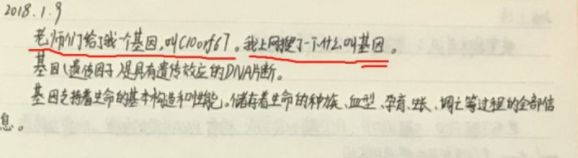 2018.1.9
老师们给了我一个基因,叫C10orf67。我上网搜了一下什么叫基因。
基因(遗传因子)是具有遗传效应的DNA片断。
基因支持着生命的基本构造和性能。储存着生命的种族、血型、孕育、生长、凋亡等过程的全部信
息。